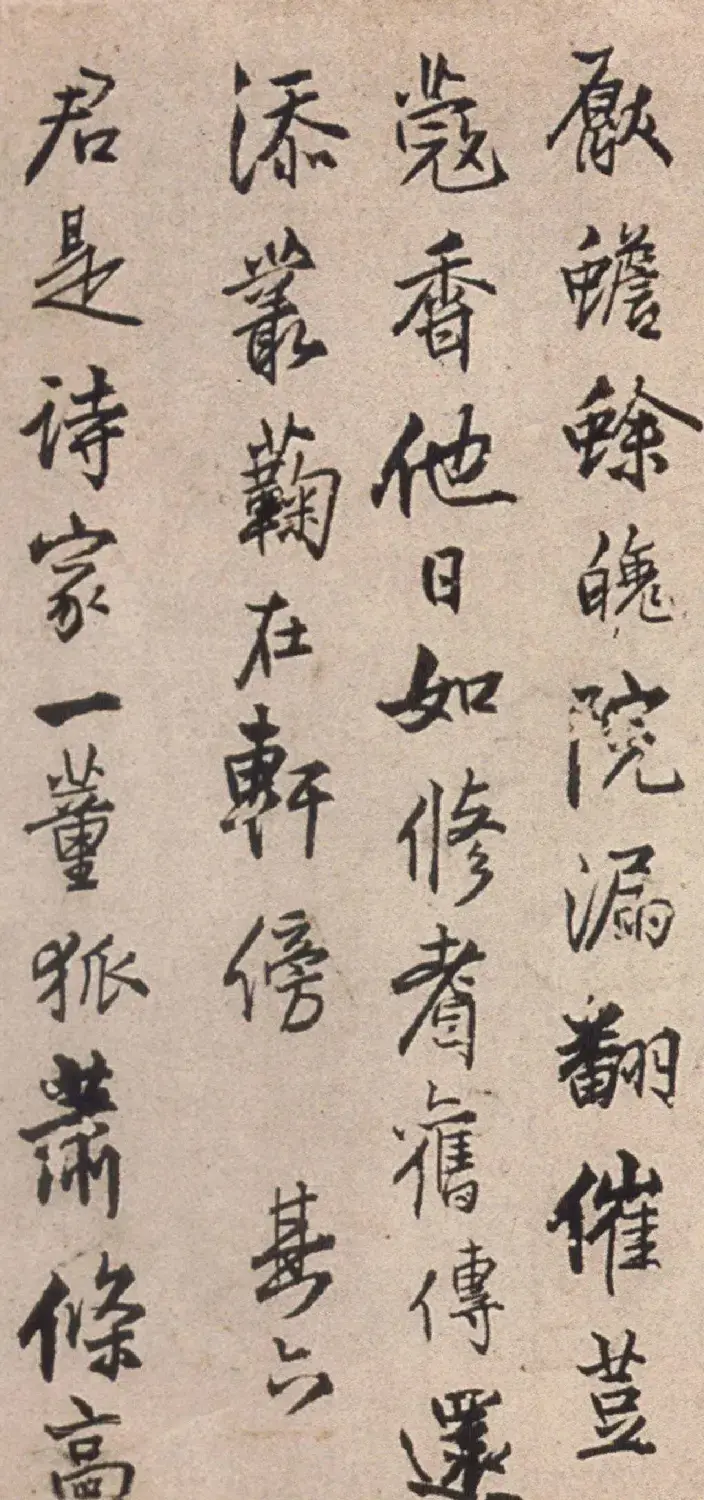 厭蟾蜍魄院漏翻催荳
蔻香他日如修耆舊傳還
添叢鞠在軒傍 其六
君是詩家一董狐蕭條高